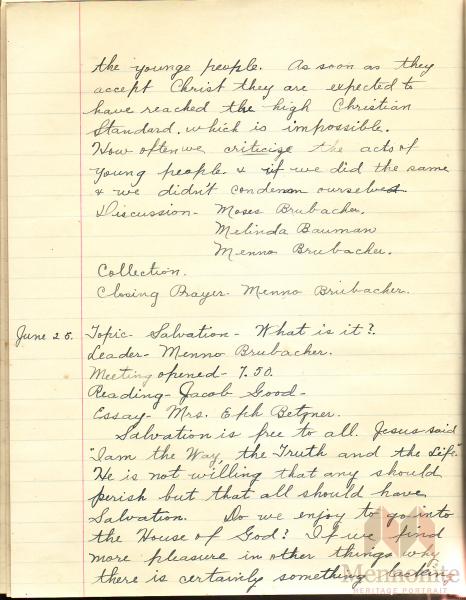 the younge people. As soon as they
accept Christ they are expected to
have reached the high Christian
Standard. which is impossible.
How often we criticize the acts of
young people & if we did the same
& we didn't condemn ourselves
Discussion - Moses Brubacher.
Melinda Bauman
Menno Brubacher.
Collection.
Closing Prayer - Menno Brubacher.
June 28. Topic - Salvation - What is it?.
Leader - Menno Brubacher.
Meeting opened - 7.50.
Reading - Jacob Good -
Essay - Mrs. Eph Betzner.
Salvation is free to all. Jesus said
"I am the Way, the Truth and the Life."
He is not willing that any should
perish but that all should have
Salvation. Do we enjoy to go into
the House of God? If we find
more pleasure in other things why
there is certainly something lacking
Mennonite
HERITAGE PORTRAIT